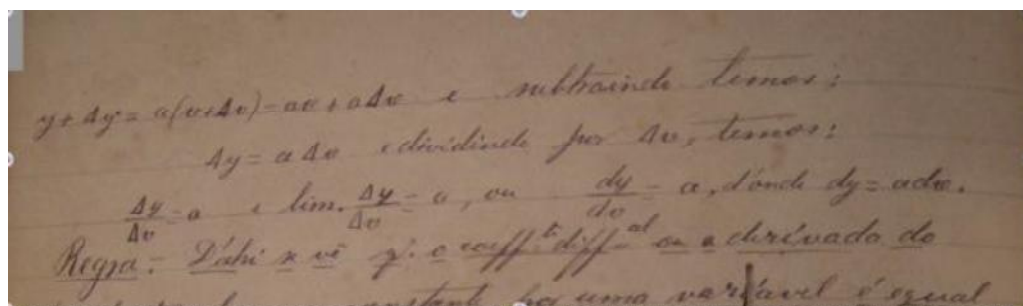 y + Δy = a(v+Δv) = av + aΔv e subtrahindo temos:
Δy = a Δv e dividindo por Δv, temos:
Δy/Δv = a e lim. Δy/Δv = a, ou dy/dv = a, d'onde dy = adv.
Regra: D'ahi se vê q. o coeff.te diff.al ou a derivada do
constante por uma variavel é egual